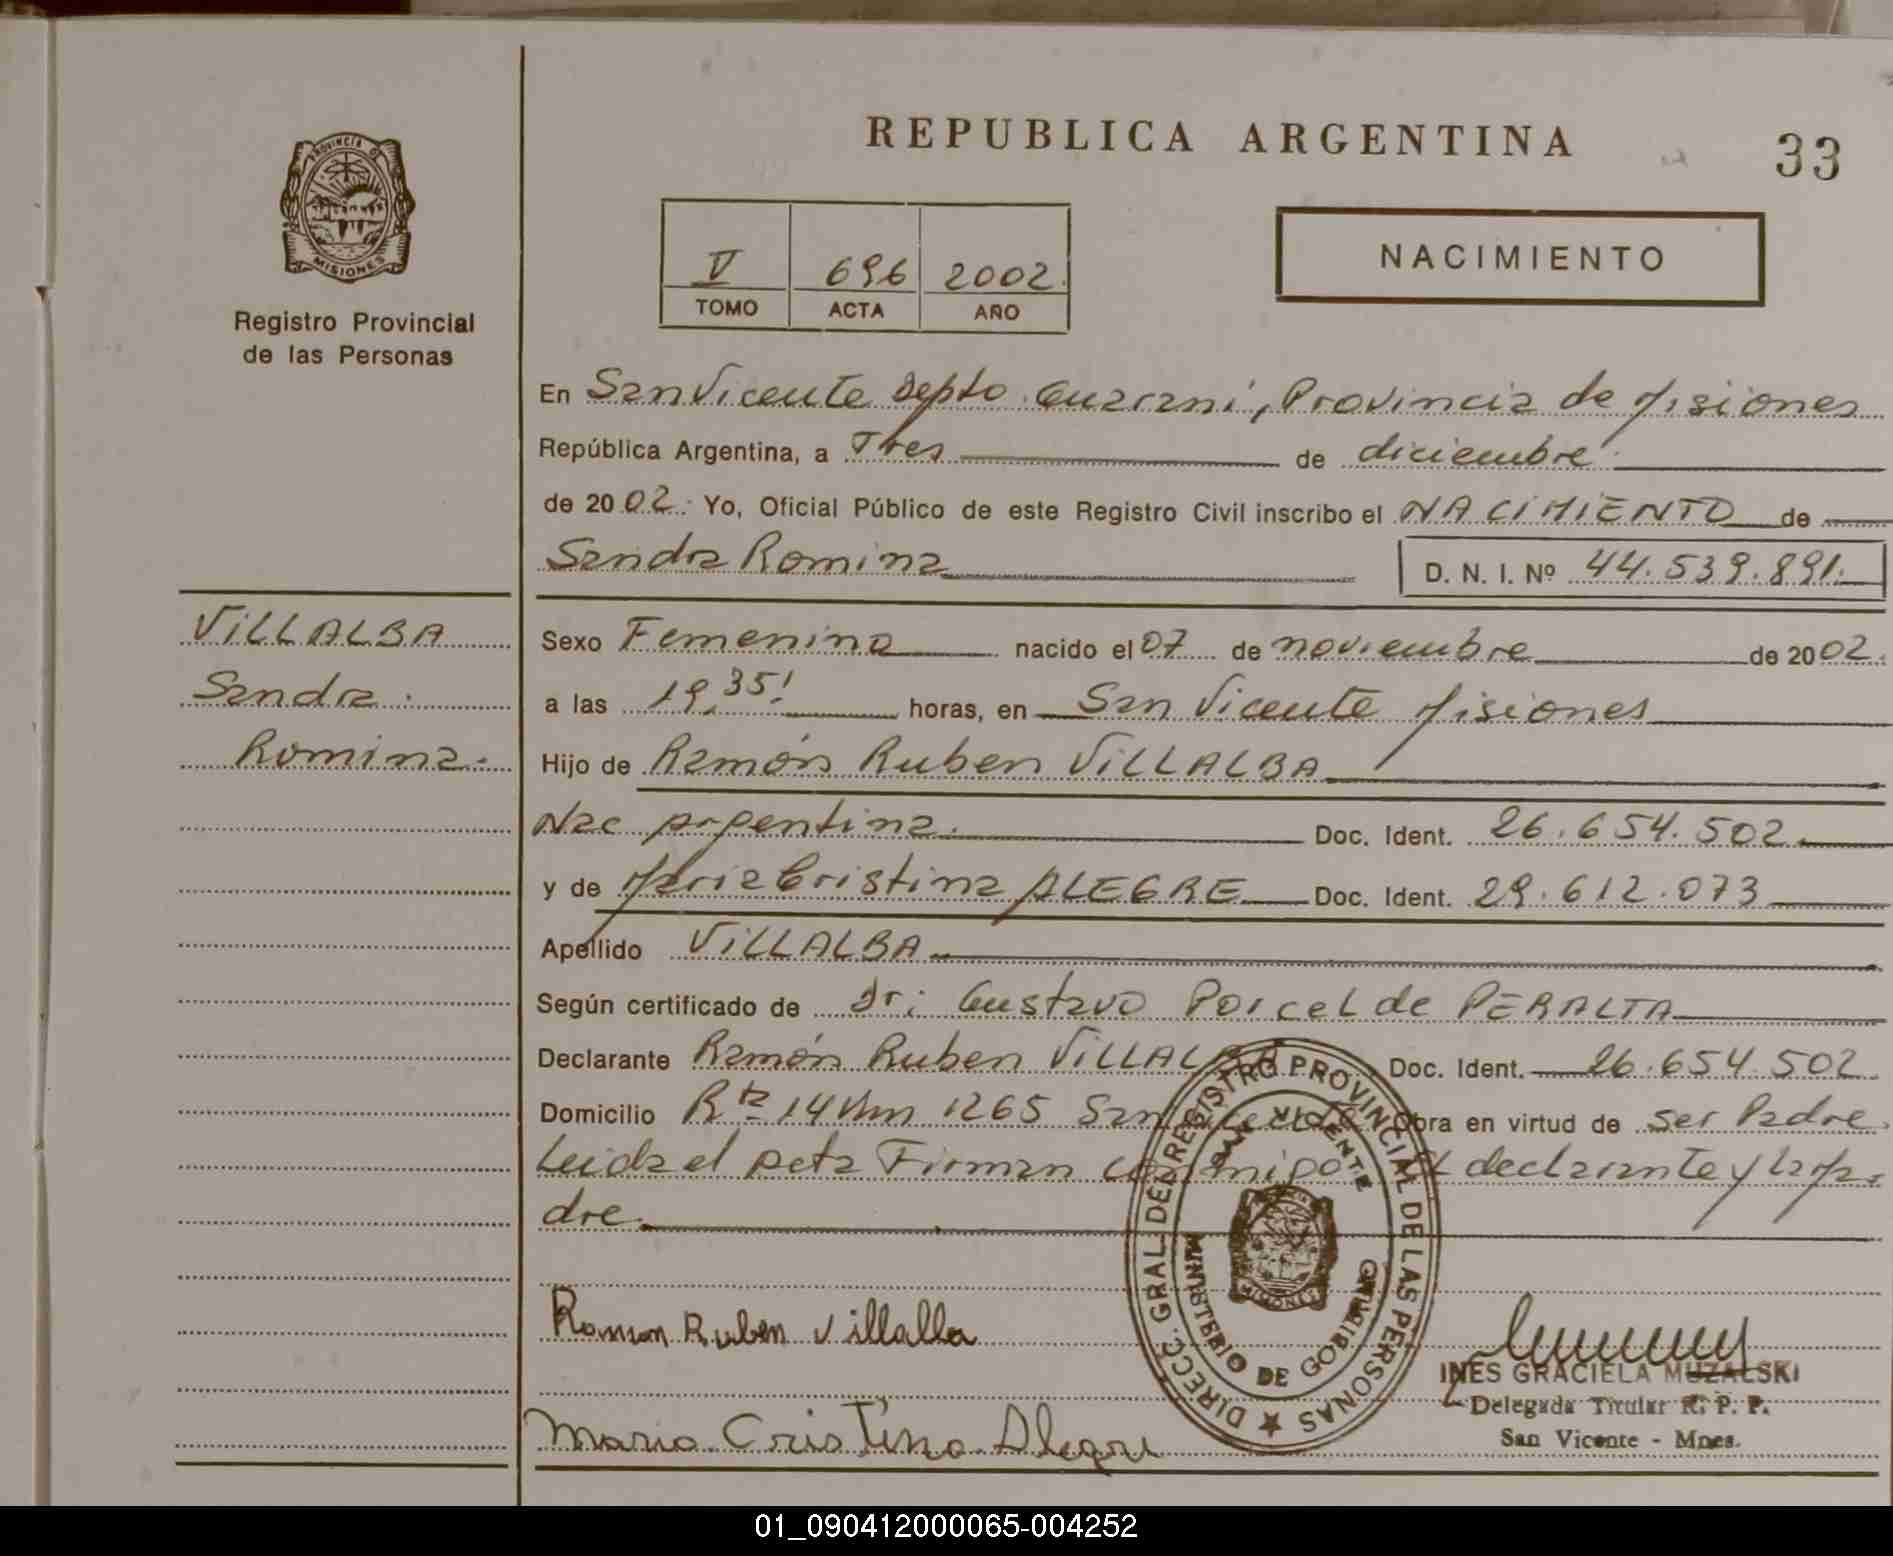 REPUBLICA ARGENTINA
33
PROVINCIA DE
MISIONES
Registro Provincial
de las Personas
V 696 2002.
TOMO ACTA AÑO
NACIMIENTO
En San Vicente Depto. Guaraní, Provincia de Misiones
República Argentina, a Tres de diciembre
de 2002. Yo, Oficial Público de este Registro Civil inscribo el NACIMIENTO de
Sandra Romina D. N. I. Nº 44.539.891.
VILLALBA
Sandra.
Romina.
Sexo Femenino nacido el 07 de noviembre de 2002.
a las 19,35' horas, en San Vicente Misiones
Hijo de Ramón Ruben VILLALBA
Nac Argentina. Doc. Ident. 26.654.502.
y de Maria Cristina ALEGRE Doc. Ident. 29.612.073
Apellido VILLALBA
Según certificado de Dr: Gustavo Porcel de PERALTA
Declarante Ramón Ruben VILLALBA Doc. Ident. 26.654.502
Domicilio Rta 14 Km 1265 San Vicente Obra en virtud de ser Padre.
Leida el Acta Firman conmigo El declarante y la Ma-
dre.
DIRECC. GRAL. DEL REGISTRO PROVINCIAL DE LAS PERSONAS
SAN VICENTE
MISIONES
MINISTERIO DE GOBIERNO
Ramon Ruben Villalba
INES GRACIELA MUZALSKI
Delegada Titular R. P. P.
San Vicente - Mnes.
Maria Cristina Alegre
01_090412000065-004252